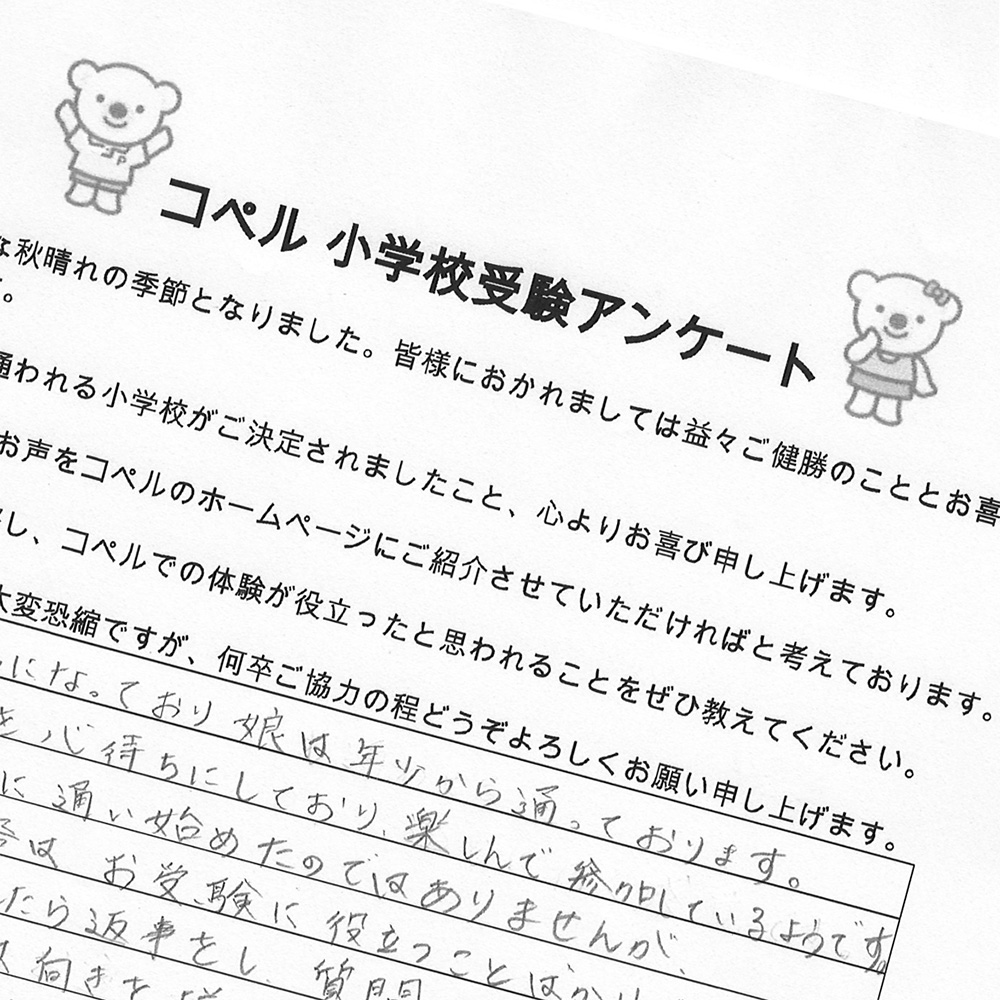 コペル 小学校受験アンケート
な秋晴れの季節となりました。皆様におかれましては益々ご健勝のこととお喜
。
通われる小学校がご決定されましたこと、心よりお喜び申し上げます。
お声をコペルのホームページにご紹介させていただければと考えております。
し、コペルでの体験が役立ったと思われることをぜひ教えてください。
大変恐縮ですが、何卒ご協力の程どうぞよろしくお願い申し上げます。
になっており娘は年少から通っております。
を心待ちにしており、楽しんで参加しているようです。
に通い始めたのではありませんが、
は お受験に役立つことばかり
たら返事をし、質問
向きを